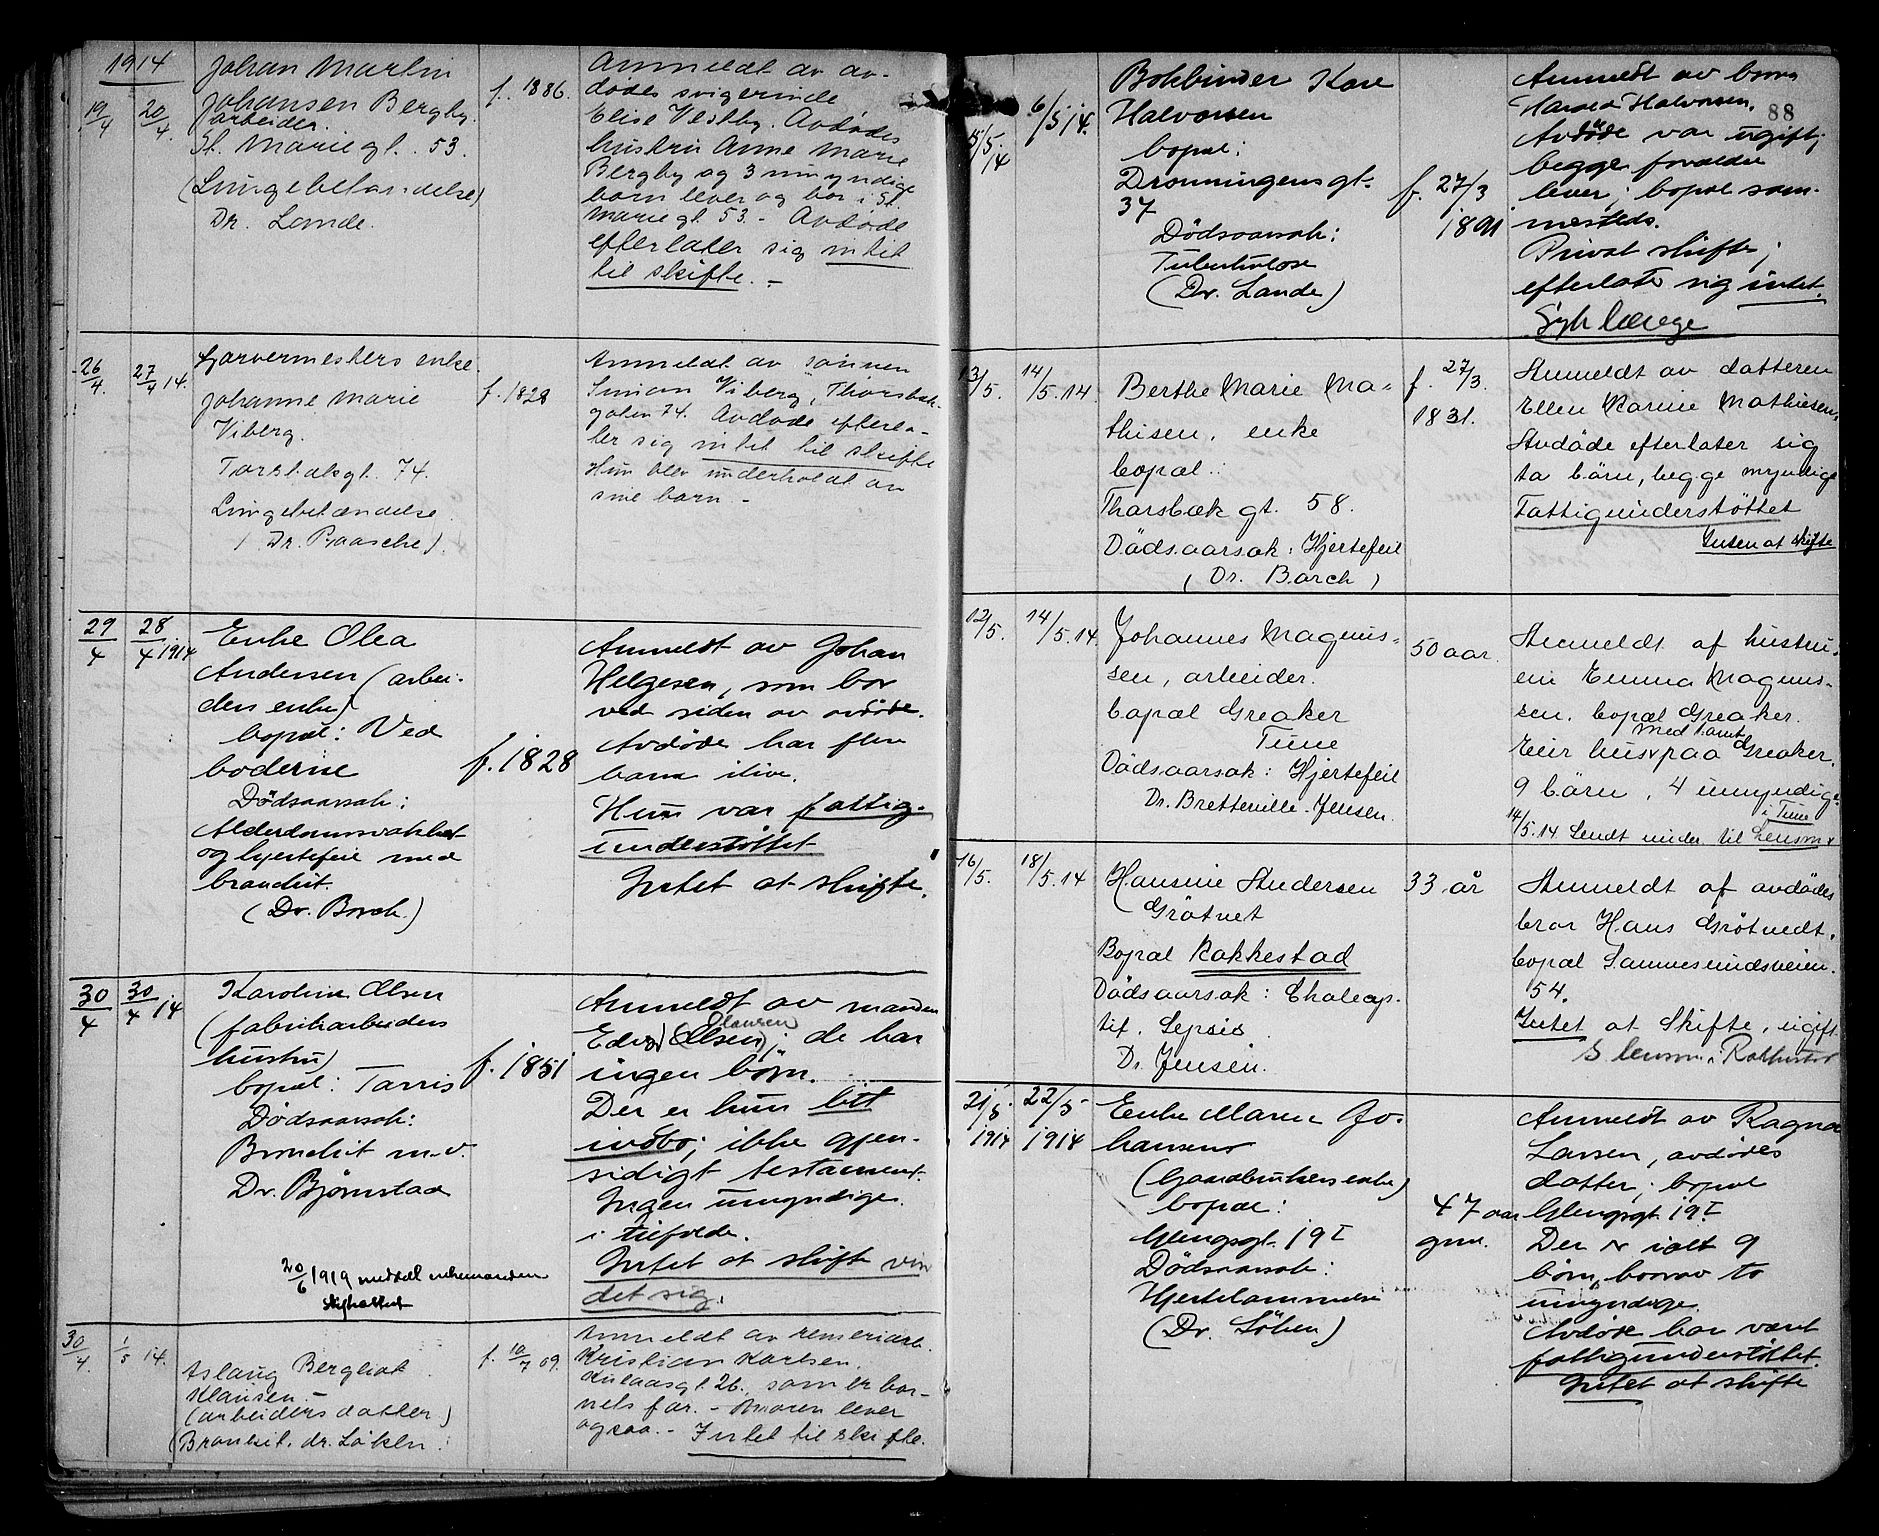 1914
19/4
20/4
Johan Martin
Johansen Bergby.
arbeider.
St. Mariegt. 53.
(Lungebetændelse)
Dr. Lande.
f. 1886.
Anmeldt av av-
dødes svigerinde
Elise Vestby. Avdødes
hustru Anne Marie
Bergby og 3 umyndige
barn lever og bor i St.
Mariegt. 53. - Avdøde
efterlater sig intet
til skifte. -
26/4.
27/4 14.
Garvermesters enke
Johanne Marie
Viberg.
Torsbaksgt. 74.
Lungebetændelse
(Dr. Paasche).
f. 1828
Anmeldt av sønnen
Simon Viberg, Thorsbæk-
gaten 74. Avdøde efterla-
ter sig intet til skifte
Hun blev underholdt av
sine barn. -
29/4
28/4 1914
Enke Olea
Andersen (arbei-
ders enke)
bopæl: Ved
boderne
Dödsaarsak:
Alderdomssvakhet
og hjertefeil med
bronchit.
(Dr. Borch.)
f. 1828
Anmeldt av Johan
Helgesen, som bor
ved siden av avdøde.
Avdøde har flere
barn ilive.
Hun var fattig-
understöttet
Intet at skifte.
30/4
30/4 14
Karoline Olsen
(fabrikarbeiders
hustru)
bopæl: Tarris
Dödsaarsak:
Bronchit m.v.
Dr. Bjørnstad
20/6 1919 meddelt enkemanden
skifteattest
f. 1851
Anmeldt av manden
Edv. (Olsen) Clausen; de har
ingen børn.
Der er kun litt
indbo; ikke gjen-
sidigt testament.
Ingen umyndige
i tilfælde.
Intet at skifte vin
det sig.
30/4.
1/5 14.
Aslaug Bergliot
Klausen -
(arbeiders datter)
(Bronkit. dr. Løken.
f. 10/7 09.
Anmeldt av remeriarb.
Kristian Karlsen,
Kulaasgt. 26., som er bar-
nets far. - Moren lever
ogsaa. - Intet til skifte.
88
15/5. 14
6/5 14.
Bokbinder Kare
Halvorsen
bopæl:
Dronningensgt.
37
Dödsaarsak:
Tuberkulose
(Dr. Lande)
f. 27/3
1891
Anmeldt av brora
Harald Halvorsen.
Avdøde var ugift;
begge forældre
lever; bopæl sam-
mesteds.
Privat skifte;
efterlate sig intet.
13/5.
14/5. 14.
Berthe Marie Ma-
thisen, enke
bopæl:
Thorsbæk gt. 58.
Dödsaarsak: Hjertefeil
(Dr. Borch)
f. 27/3.
1831.
Anmeldt av datteren
Ellen Karine Mathiesen,
Avdöde efterlater sig
to börn, begge myndige
Fattigunderstöttet
Inten at skifte
12/5.
14/5. 14.
Johannes Magnus-
sen, arbeider.
bopæl Greaker
Tune
Dödsaarsak: Hjertefeil
Dr. Bretteville-Jensen.
50 aar.
Anmeldt af hustru-
en Emma Magnus-
sen. bopæl Greaker.
med tomt
Eier hus paa Greaker.
9 börn, 4 umyndige
i Tune
14/5.14 Sendt under. til Lensm.
16/5.
18/5. 14
Hansine Andersen
Grötvet
Bopæl Rakkestad
Dödsaarsak: Choleap-
tif. Sepsis
Dr. Jensen.
33 år
Anmeldt af avdödes
bror Hans Grötvedt.
bopæl Sannesundsveien.
54.
Intet at skifte, ugift
S. lensm. i Rakkestad
21/5
1914
22/5
1914
Enke Maren Jo-
hansens
(Gaardbrukers enke)
bopæl:
Glengsgt. 19 I
Dödsaarsak:
Hjertelammelse
(Dr. Löken)
47 aar
gml.
Anmeldt av Ragna
Larsen, avdødes
datter; bopæl
Glengsgt. 19 I
Der er ialt 9
børn, hvorav to
umyndige.
Avdøde har været
fattigunderstöttet.
Intet at skifte